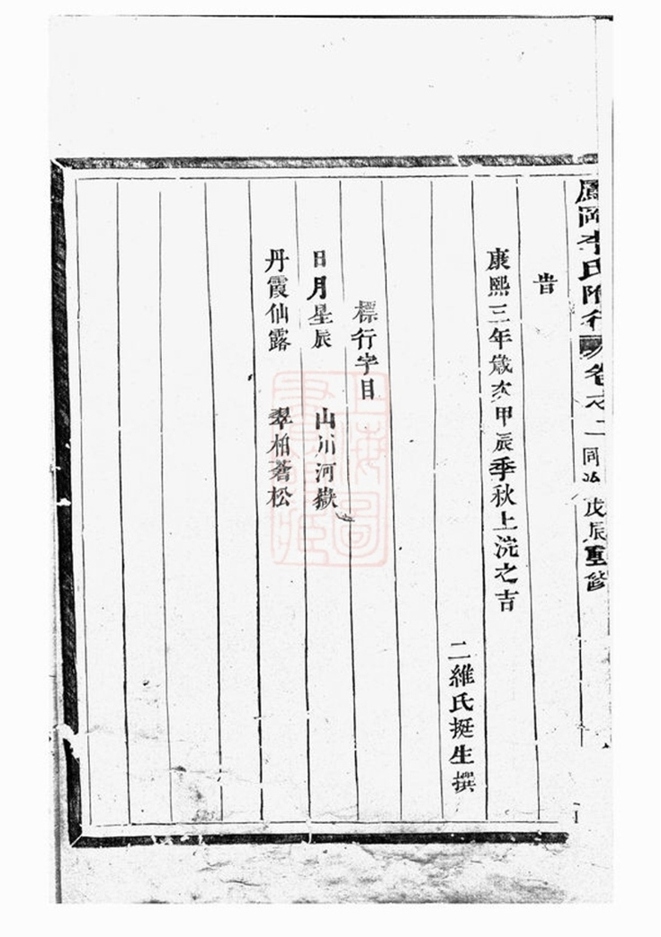 鳳岡李氏附行卷之二 同治戊辰重修
旹
康熙三年歲次甲辰季秋上浣之吉
二維氏挺生撰
標行字目
日月星辰 山川河嶽
丹霞仙露 翠柏蒼松